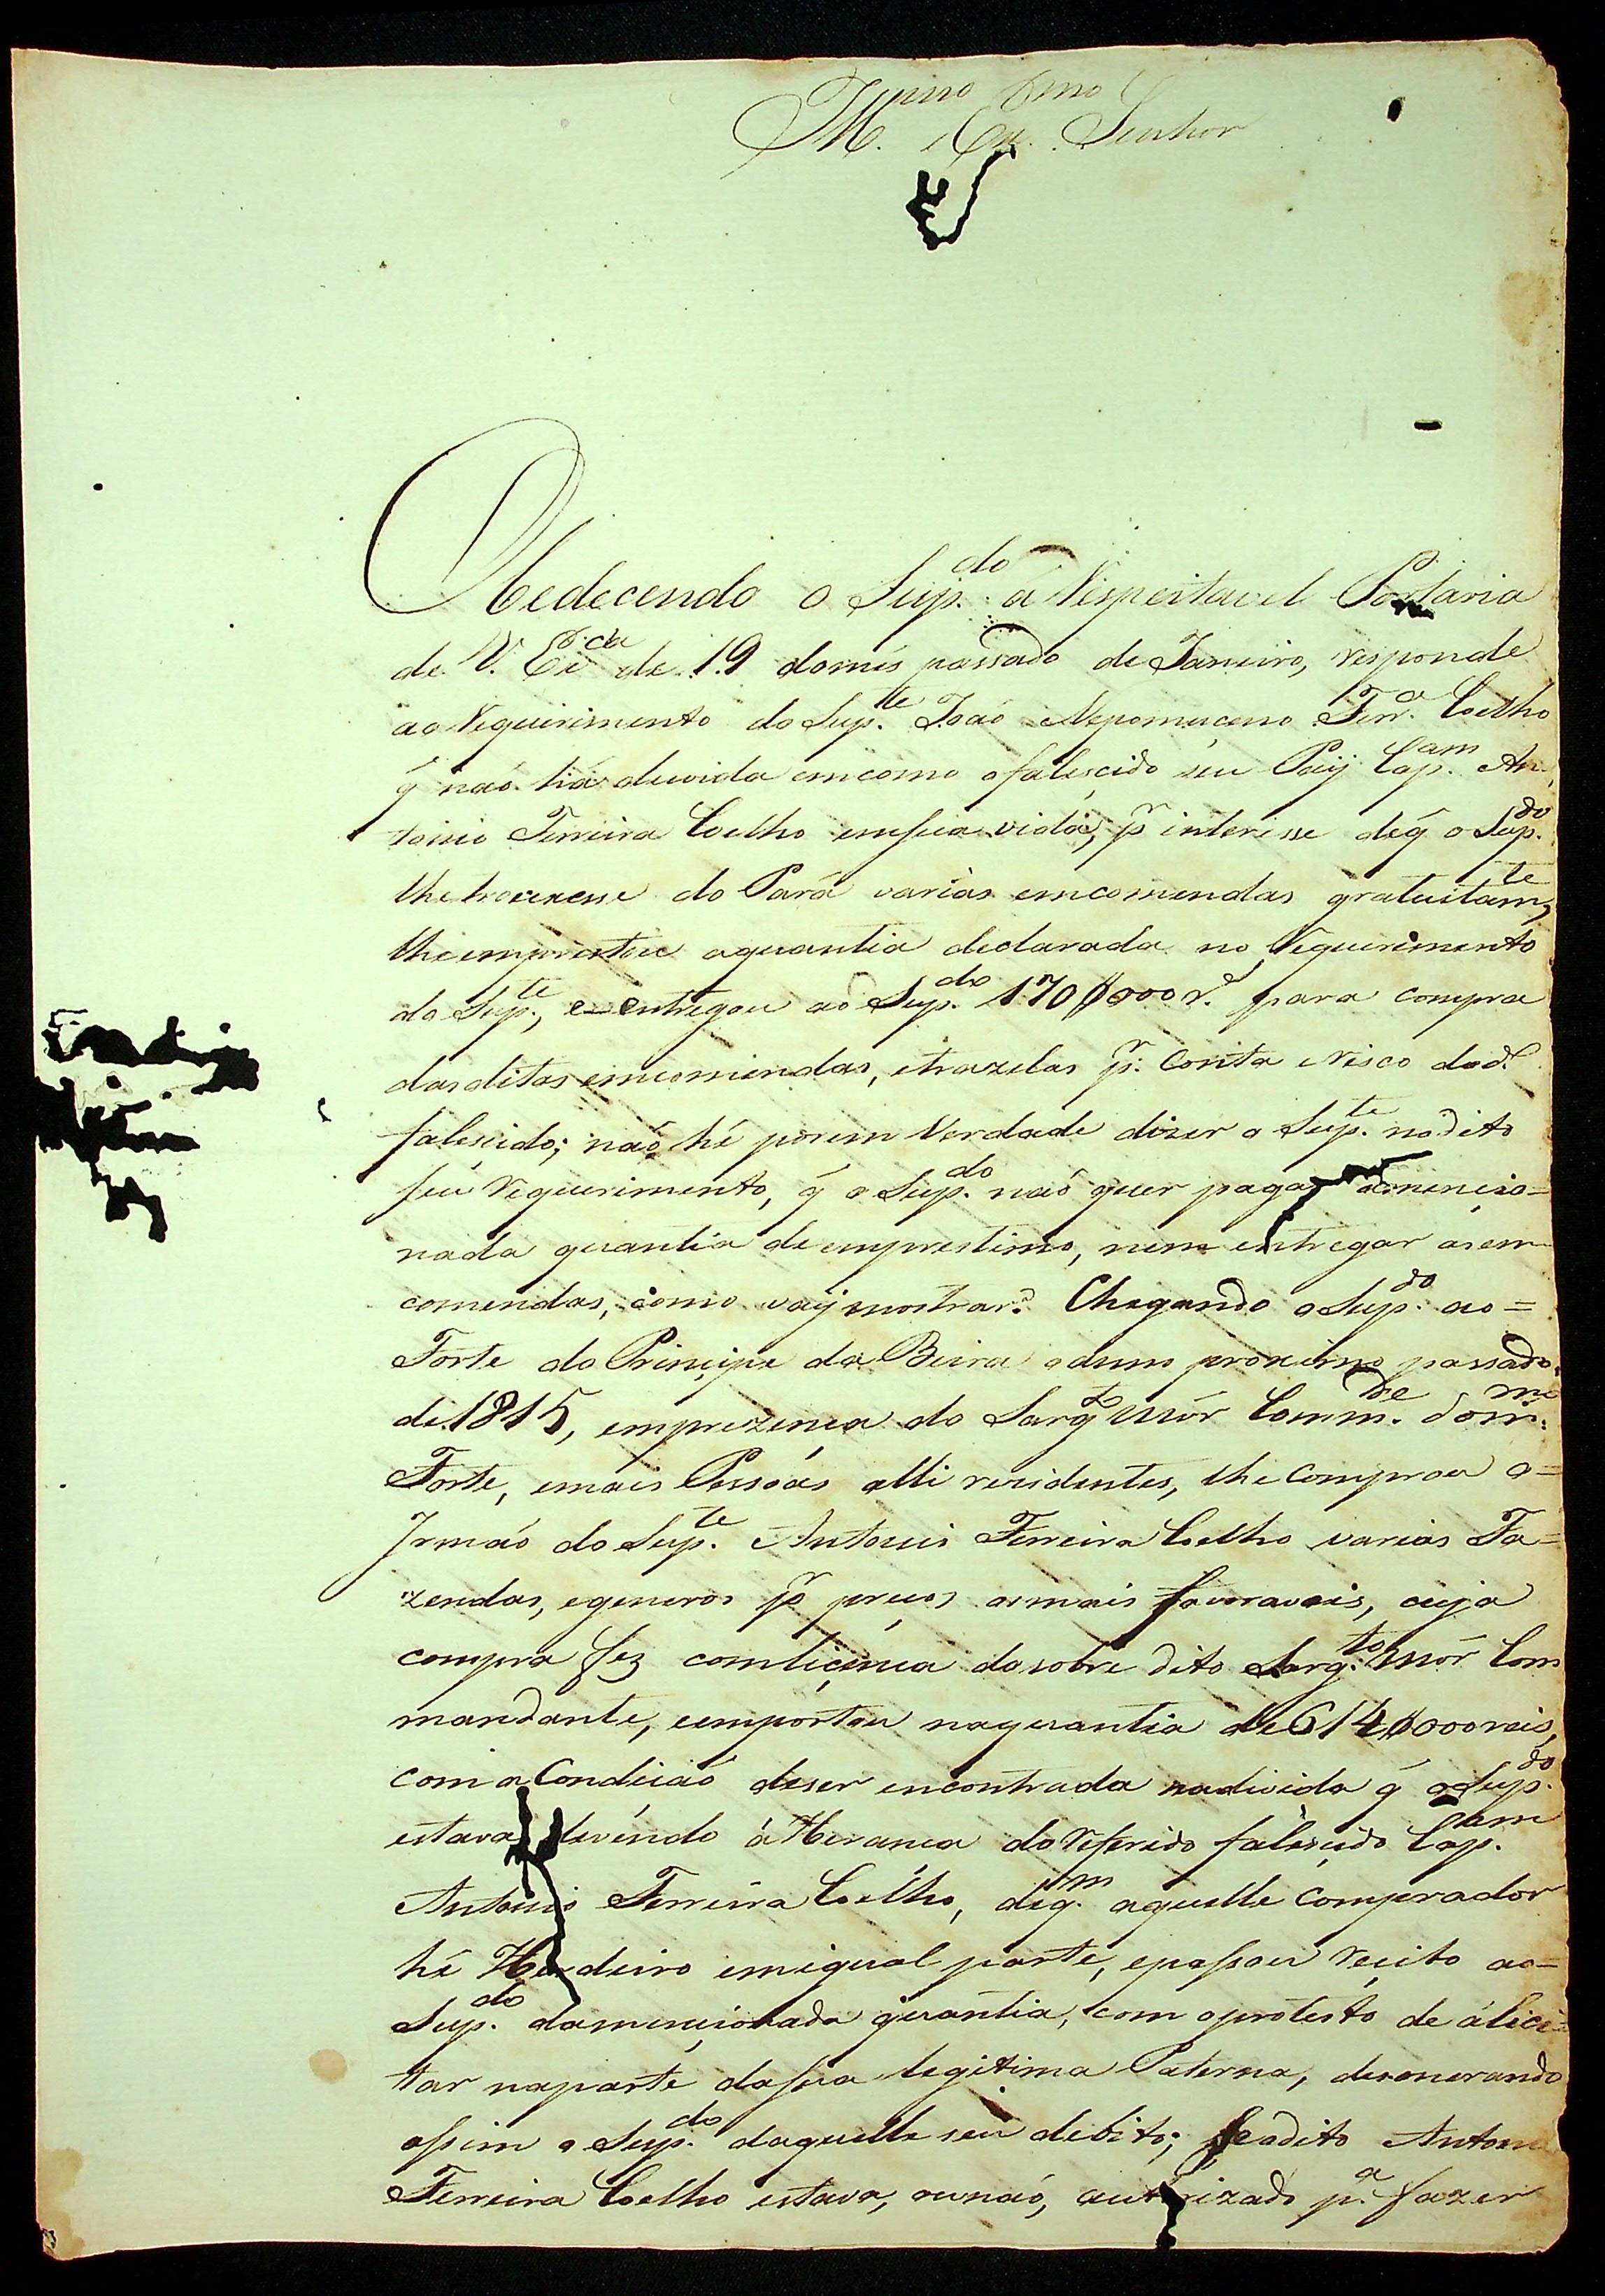 Illmo Exmo Senhor
Obedecendo o Sup.do á Respeitavel Portaria
de V. Ex.cia de 19 do mes passado de Janeiro, responde
ao Requirimento do Sup.te Joaó Nepomuceno Ferr.a Coelho
q̃ naó há duvida em como o falescido seu Paiy Cap.am An-
tonio Ferreira Coelho em sua vida, p.r interesse de q̃ o Sup.do
lhe trouxesse do Pará varias emcomendas gratuitam.te,
lhe emprestou a quantia declarada no Requerimento
do Sup.te, e entregou ao Sup.do 170$000 r.s para compra
das ditas emcomendas, e trazelas p.r Conta e Risco do d.o
falescido; naó hé porem Verdade dizer o Sup.te no dito
seu Requerimento, q̃ o Sup.do naó quer pagar a mencio=
nada quantia de emprestimo, nem entregar as em
comendas, como vaiy mostrar. Chegando o Sup.do ao=
Forte do Principe da Beira o anno proximo passado
de 1815, em prezença do Sarg.to mór Comm.de do m.mo
Forte, e mais Pessoas alli rezidentes, lhe Comprou o=
Irmaó do Sup.te Antonio Ferreira Coelho varias Fa=
zendas, e generos p.r preços os mais favoraveis, cuja
compra fez com licença do sobre dito Sarg.to mór Com
mandante, e emportou na quantia de 614$000 reis,
com a Condiçaó de ser encontrada na divida q̃ o Sup.do
estava devendo á Herança do Referido falescido Cap.am
Antonio Ferreira Coelho, de q.m aquelle Comprador
hé Herdeiro em igual parte, e passou Recito ao=
Sup.do da mencionada quantia, com o protesto de a lici=
tar na parte da sua legitima Paterna, desonerando
assim o Sup.do daquelle seu debito; se o dito Antonio
Ferreira Coelho estava, ou naó, autorizado p.a fazer